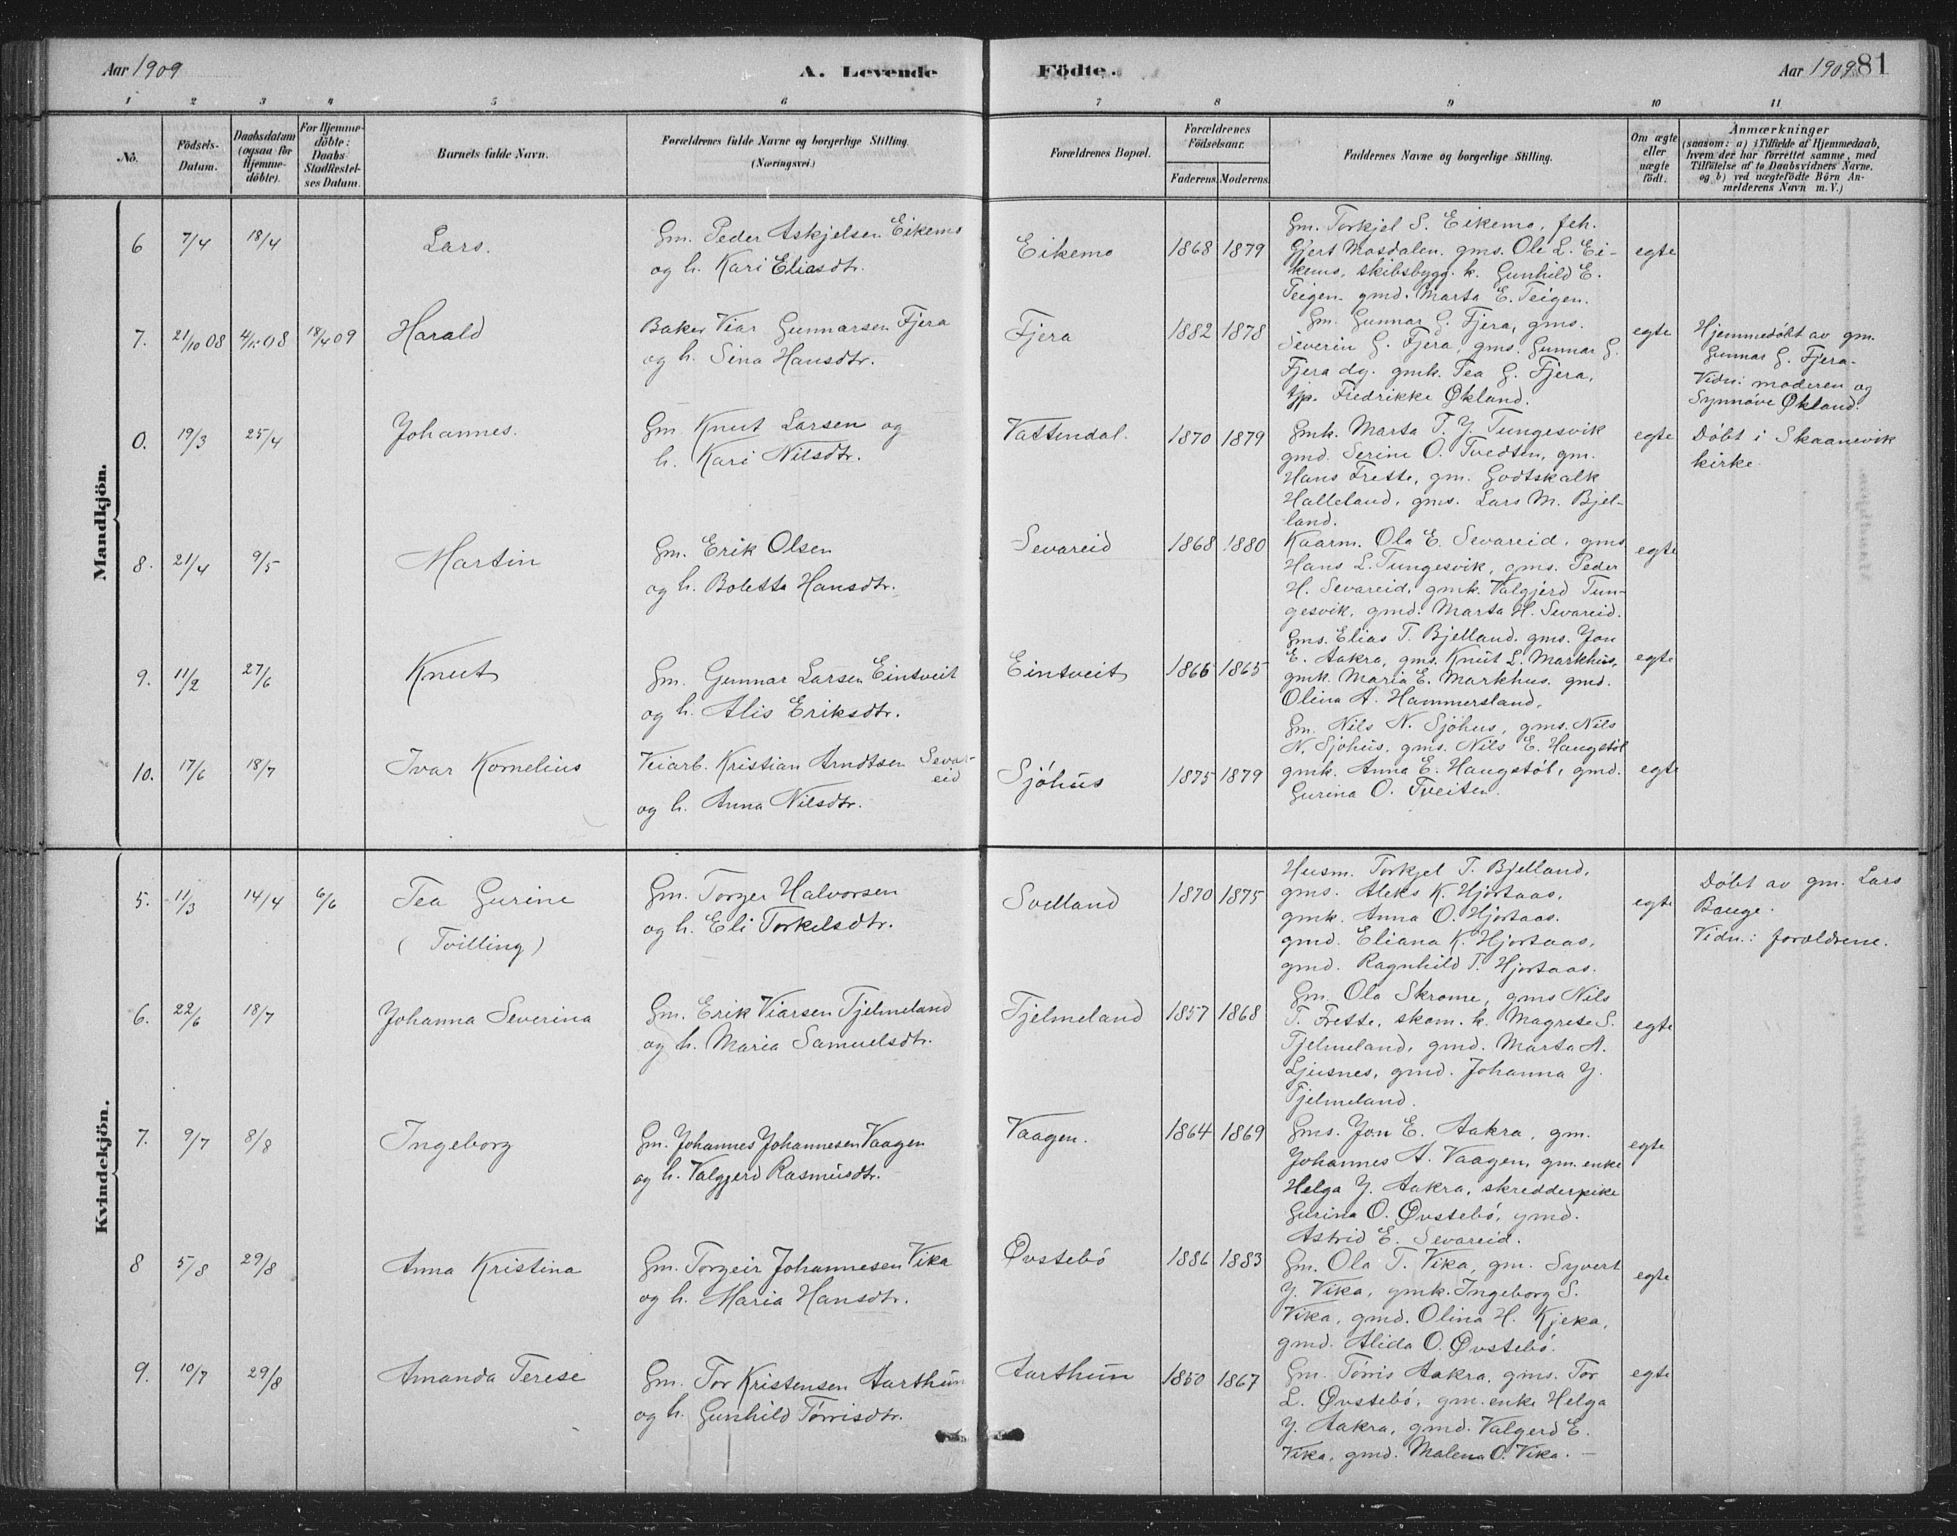 Aar 1909 A. Levende Födte. Aar 1909 81
1 2 3 4 5 6 7 8 9 10 11
No. Födsels-Datum. Daabsdatum (ogsaa for Hjemme-döbte). For Hjemme-döbte: Daabs Stadfæstel-ses Datum. Barnets fulde Navn. Forældrenes fulde Navne og borgerlige Stilling (Næringsvei.) Forældrenes Bopæl. Forældrenes Födselsaar. Faderens. Moderens. Faddernes Navne og borgerlige Stilling. Om ægte eller uægte födt. Anmærkninger
(saasom: a) i Tilfælde af Hjemmedaab,
hvem der har forrettet samme, med
Tilföielse af to Daabsvidners Navne.
og b) ved uægtefödte Börn An-
melderens Navn m. V.)
Mandkjön.
6 7/4 18/4 Lars. Gm. Peder Askjelsen Eikemo
og h. Kari Eliasdtr. Eikemo 1868 1879 Gm. Torkjel S. Eikemo, feh.
Gjert Mosdalen. gms. Ole L. Ei-
kemo, skibsbygg. k. Gunhild E.
Teigen. gmd. Marta E. Teigen. egte
7. 21/10 08 08 18/4 09 Harald Baker Viar Gunnarsen Fjera
og h. Sina Hansdtr. Fjera 1882 1878 Gm. Gunnar G. Fjera, gms.
Severin G. Fjera, gms. Gunnar G.
Fjera dg. gmk. Tea G. Fjera,
tjp. Fredrikke Økland. egte Hjemmedøbt av gm.
Gunnar G. Fjera.
Vidn: moderen og
Synnøve Økland.
0. 19/3 25/4 Johannes. Gm. Knut Larsen og
h. Kari Nilsdtr. Vattendal. 1870 1879 Gmk. Marta T. Y. Tungesvik
gmd. Serine O. Tvedten, gm.
Hans Frette, gm. Godtskalk
Halleland, gms. Lars M. Bjel-
land. egte Døbt i Skaanevik
kirke.
8. 21/4 9/5 Martin Gm. Erik Olsen
og h. Bolette Hansdtr. Sevareid 1868 1880 Kaarm. Ola E. Sevareid, gms
Hans L. Tungesvik, gms. Peder
H. Sevareid, gmk. Valgjerd Tun-
gesvik, gmd. Marta H. Sevareid. egte
9. 11/2 27/6 Knut Gm. Gunnar Larsen Eintveit
og h. Alis Eriksdtr. Eintveit 1866 1865 Gms. Elias T. Bjelland. gms. Jon
E. Aakra, gms. Knut L. Markhus,
gmk. Maria E. Markhus. gmd.
Olina A. Hammersland. egte
10. 17/6 18/7 Ivar Kornelius Veiarb. Kristian Arndtsen Sevar-
eid
og h. Anna Nilsdtr. Sjöhus 1875 1879 Gm. Nils N. Sjöhus, gms. Nils
N. Sjöhus, gms. Nils E. Haugstöl
gmk. Anna E. Haugstöl, gmd.
Gurina O. Tveiten. egte
Kvindekjön.
5. 11/3 14/4 6/6 Tea Gurine
(Tvilling) Gm. Torger Halvorsen
og h. Eli Torkelsdtr. Svelland 1870 1875 Husm. Torkjel T. Bjelland,
gms. Aleks K. Hjortaas,
gmk. Anna O. Hjortaas.
gmd. Eliana K. Hjortaas,
gmd. Ragnhild T. Hjortaas. egte Döbt av gm. Lars
Bauge.
Vidn.: forældrene.
6. 22/6 18/7 Johanna Severina Gm. Erik Viarsen Tjelmeland
og h. Maria Samuelsdtr. Tjelmeland 1857 1868 Gm. Ola Skrome, gms Nils
T. Frette, skom. k. Magrete S.
Tjelmeland, gmd. Marta A.
Ljusnes, gmd. Johanna Y.
Tjelmeland. egte
7. 9/7 8/8 Ingeborg Gm. Johannes Johannesen Vaagen
og h. Valgjerd Rasmusdtr. Vaagen. 1864 1869 Gms. Jon E. Aakra, gm.
Johannes A. Vaagen, gm. enke
Helga Y. Aakra, skredderpike
Gurina O. Øvstebö, gmd.
Astrid E. Sevareid. egte
8 5/8 29/8 Anna Kristina Gm. Torgeir Johannesen Vika
og h. Maria Hansdtr. Øvstebö 1886 1883 Gm. Ola T. Vika, gm. Syvert
Y. Vika, gmk. Ingeborg S.
Vika, gmd. Olina H. Kjeka,
gmd. Alida O. Øvstebö. egte
9. 10/7 29/8 Amanda Terese Gm. Tor Kristensen Aarthun
og h. Gunhild Tørrisdtr. Aarthun 1850 1867 Gm. Tørris Aakra, gms. Tor
L. Øvstebö, gm. enke Helga
Y. Aakra, gmd. Valgerd E.
Vika, gmd. Malena O. Vika. — egte